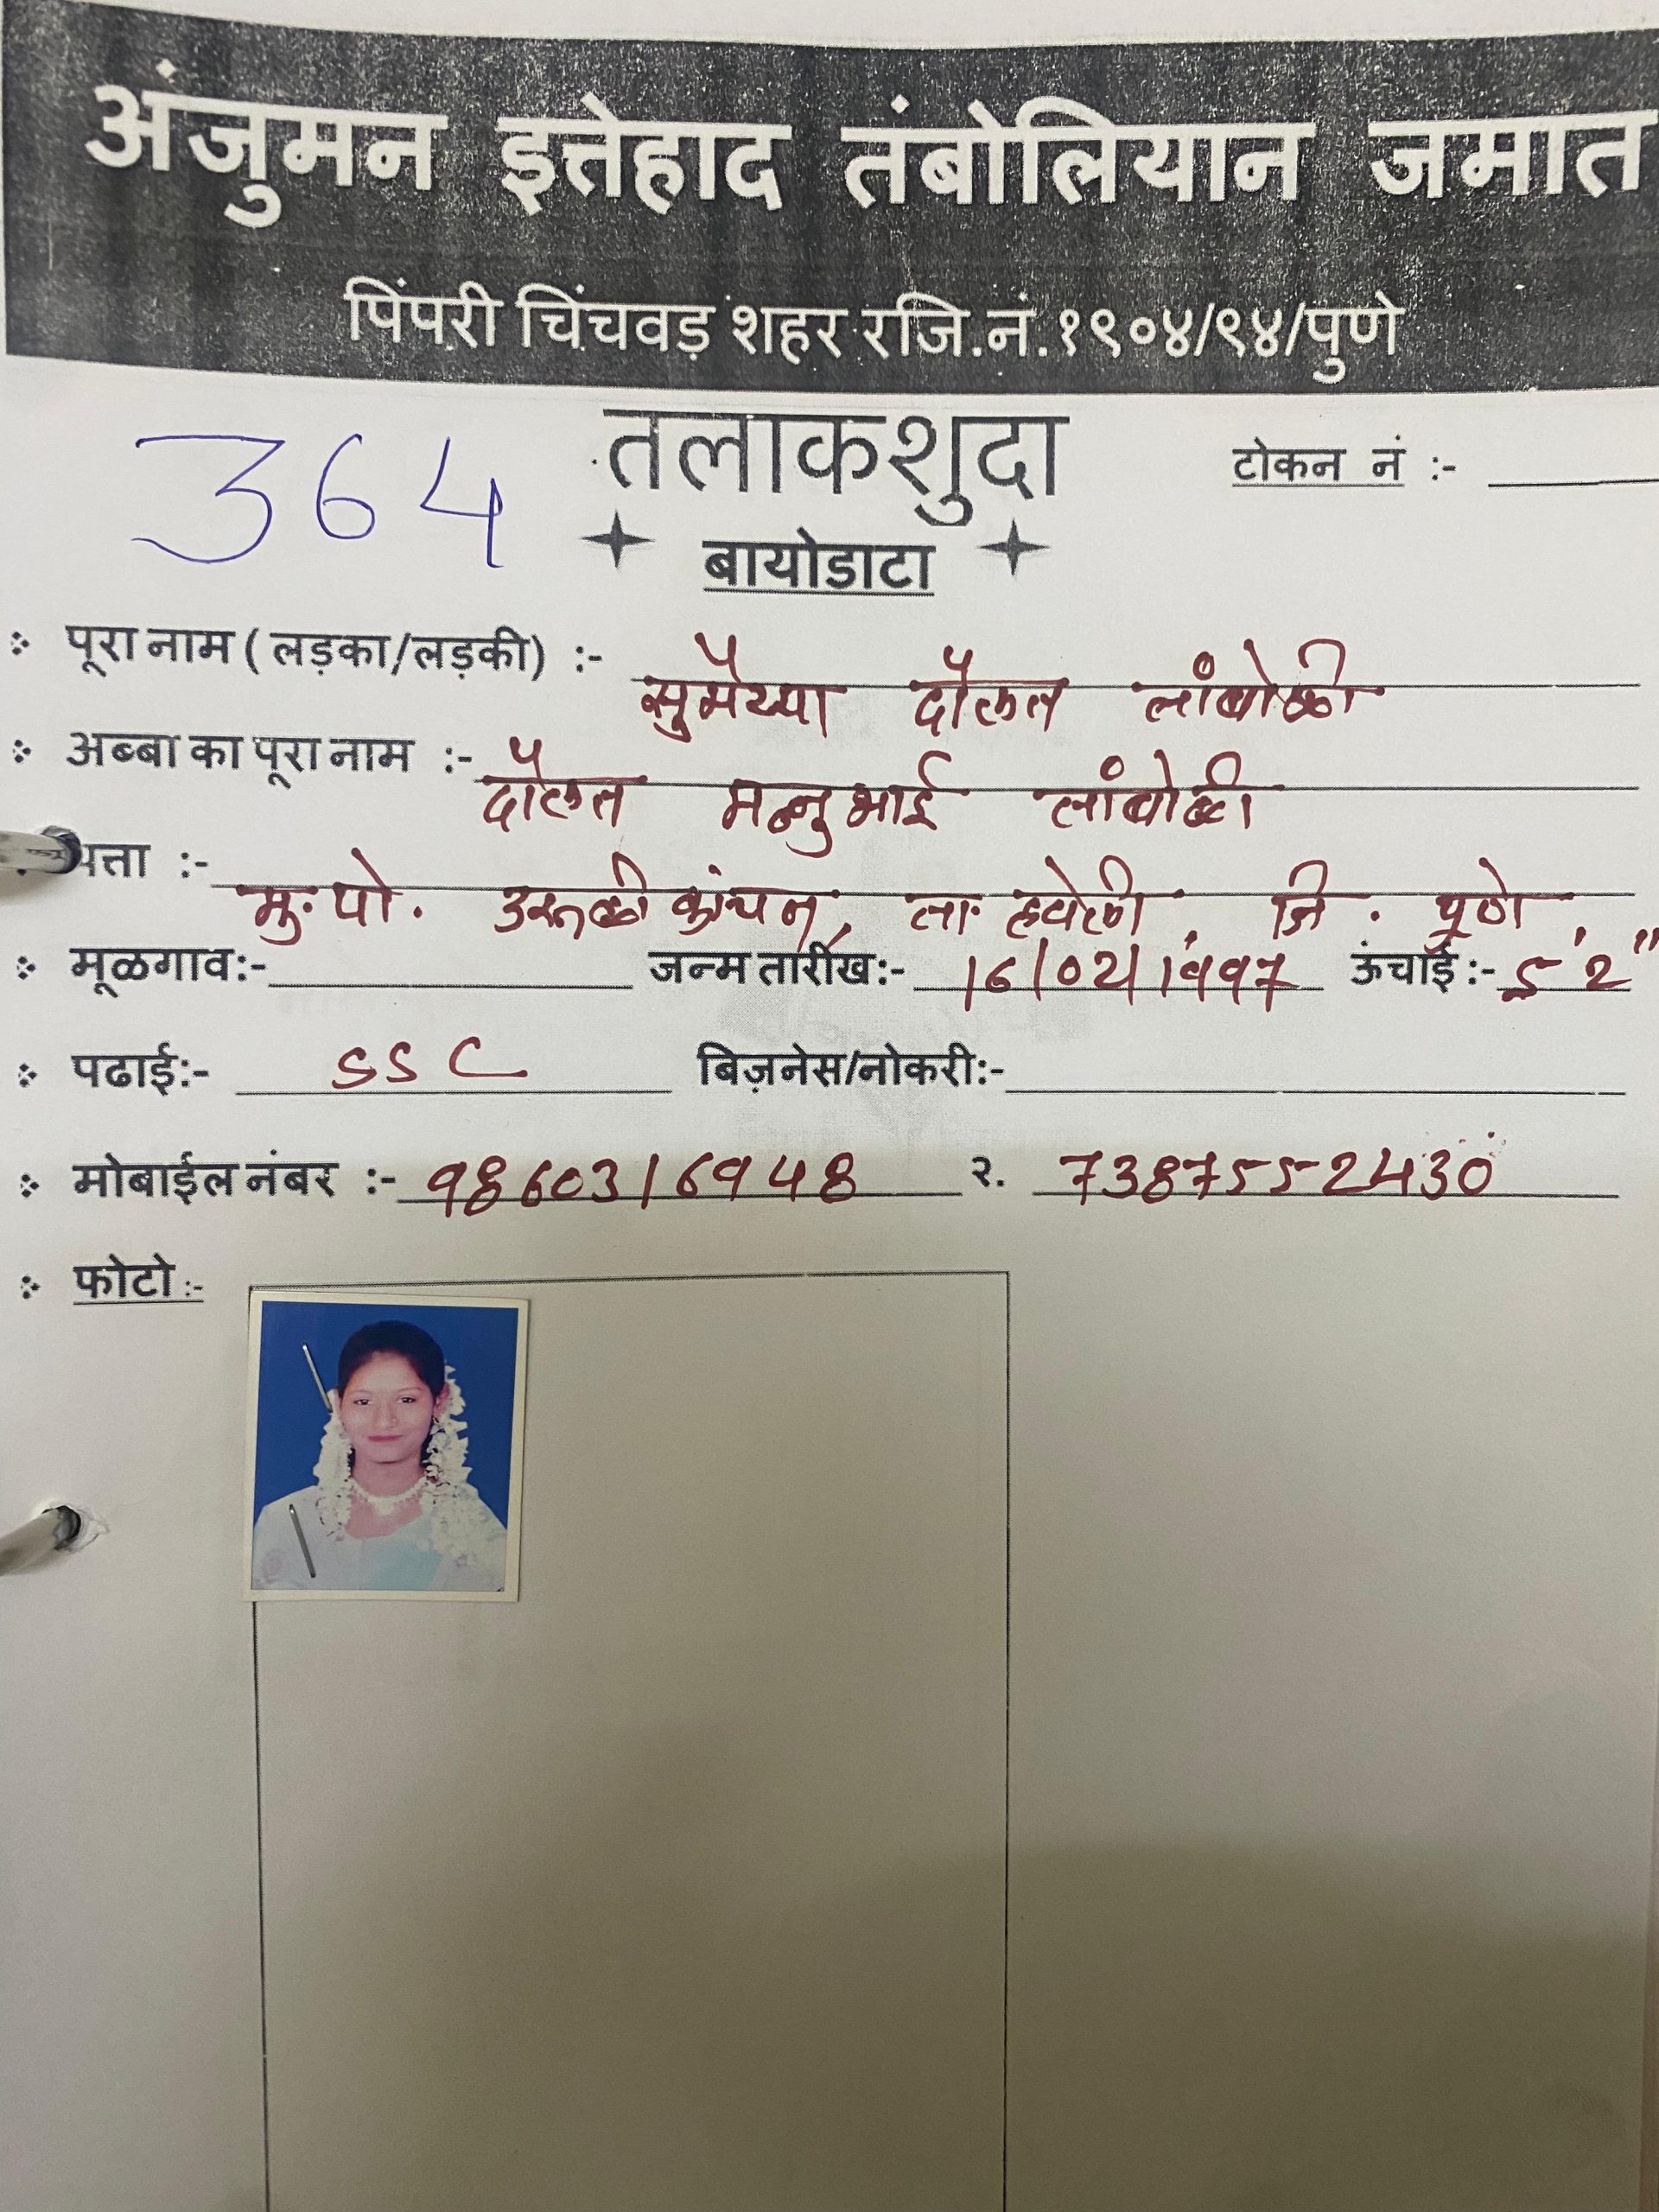 अंजुमन इत्तेहाद तंबोलियान जमात
पिंपरी चिंचवड़ शहर रजि.नं.१९०४/९४/पुणे
364 तलाकशुदा टोकन नं :-
बायोडाटा
पूरा नाम ( लड़का/लड़की) :- सुमैय्या दौलत तांबोळी
अब्बा का पूरा नाम :- दौलत मन्नुभाई तांबोळी
पत्ता :- मु. पो. उरूळी कांचन, ता. हवेली, जि. पुणे.
मूळगाव:- जन्म तारीख:- 16/02/1997 ऊंचाई:- 5'2"
पढाई:- SSC बिज़नेस/नोकरी:-
मोबाईल नंबर :- 9860316948 २. 7387552430
फोटो :-